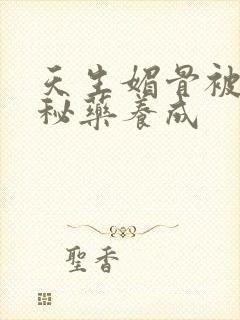 天生媚骨被
秘藥養成
聖香